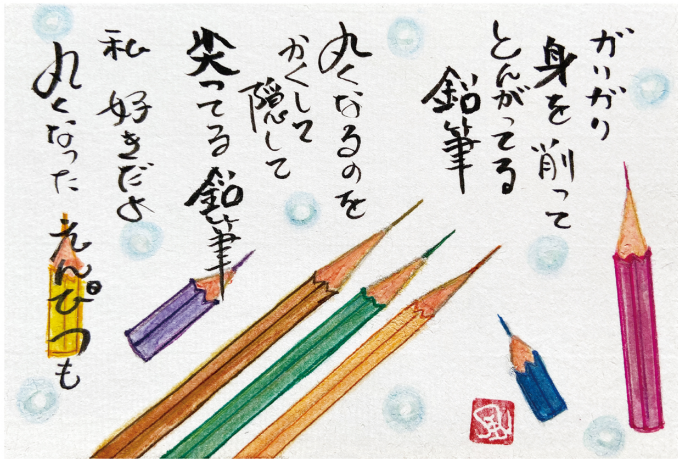 がりがり
身を削って
とんがってる
鉛筆
丸くなるのを
かくして
隠して
尖ってる鉛筆
私 好きだよ
丸くなった えんぴつも